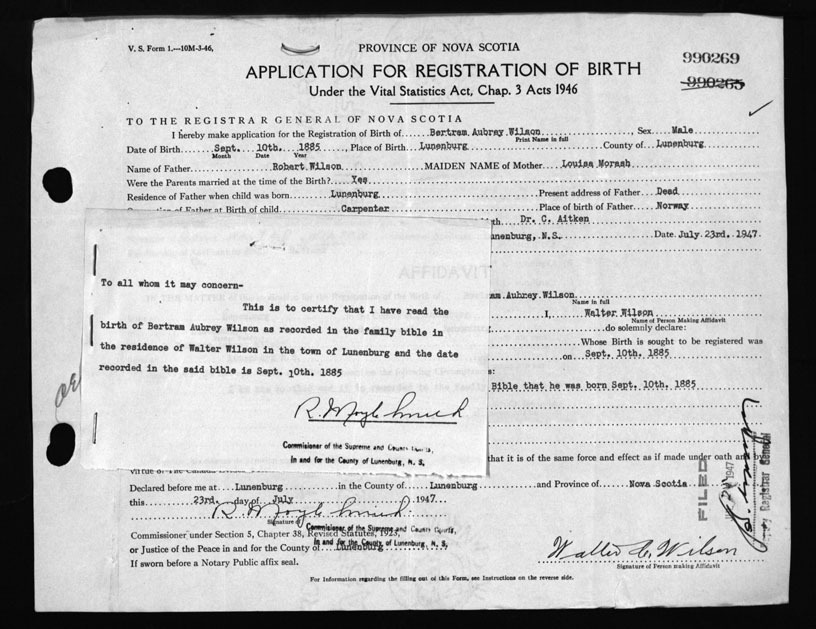 V. S. Form 1.—10M-3-46,
PROVINCE OF NOVA SCOTIA
990269
APPLICATION FOR REGISTRATION OF BIRTH
990265
Under the Vital Statistics Act, Chap. 3 Acts 1946
TO THE REGISTRAR GENERAL OF NOVA SCOTIA
I hereby make application for the Registration of Birth of Bertram Aubrey Wilson, Sex Male
Print Name in full
Date of Birth Sept. 10th. 1885, Place of Birth Lunenburg County of Lunenburg
Month Date Year
Name of Father Robert Wilson MAIDEN NAME of Mother Louisa Morash
Were the Parents married at the time of the Birth? Yes
Residence of Father when child was born Lunenburg Present address of Father Dead
of Father at Birth of child Carpenter Place of birth of Father Norway
Dr. C. Aitken
unenburg, N.S. Date July 23rd. 1947.
AFFIDAVIT
To all whom it may concern-
This is to certify that I have read the
birth of Bertram Aubrey Wilson as recorded in the family bible in
the residence of Walter Wilson in the town of Lunenburg and the date
recorded in the said bible is Sept. 10th. 1885
Commissioner of the Supreme and County Courts,
In and for the County of Lunenburg, N. S.
Aubrey Wilson
Name in full
I, Walter Wilson
Name of Person Making Affidavit
do solemnly declare:
Whose Birth is sought to be registered was
on Sept. 10th. 1885
Bible that he was born Sept. 10th. 1885
that it is of the same force and effect as if made under oath and by
Declared before me at Lunenburg in the County of Lunenburg and Province of Nova Scotia
this 23rd. day of July 1947.
Signature of
Commissioner of the Supreme and County Courts,
In and for the County of Lunenburg, N. S.
Commissioner under Section 5, Chapter 38, Revised Statutes, 1923,
or Justice of the Peace in and for the County of Lunenburg
If sworn before a Notary Public affix seal.
Walter C. Wilson
Signature of Person making Affidavit
For Information regarding the filling out of this Form, see Instructions on the reverse side.
FILED
1947
Registrar General